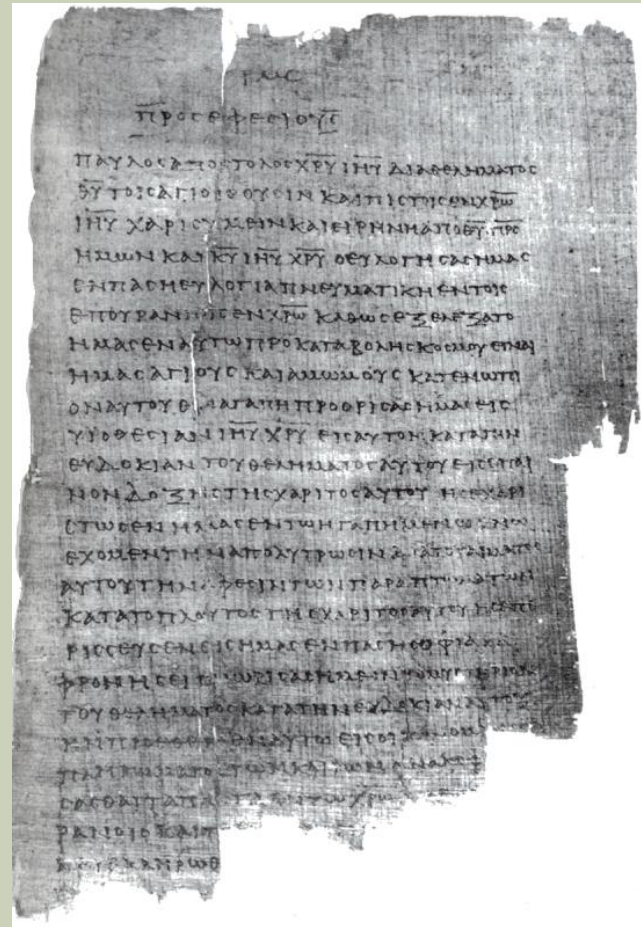 ΡΜϚ
ΠΡΟΣ ΕΦΕΣΙΟΥΣ
ΠΑΥΛΟΣ ΑΠΟΣΤΟΛΟΣ ΧΡΥ ΙΗΥ ΔΙΑ ΘΕΛΗΜΑΤΟΣ
ΘΥ ΤΟΙΣ ΑΓΙΟΙΣ ΟΥΣΙΝ ΚΑΙ ΠΙΣΤΟΙΣ ΕΝ ΧΡΩ
ΙΗΥ ΧΑΡΙΣ ΥΜΕΙΝ ΚΑΙ ΕΙΡΗΝΗ ΑΠΟ ΘΥ ΠΡΣ
ΗΜΩΝ ΚΑΙ ΚΥ ΙΗΥ ΧΡΥ Ο ΕΥΛΟΓΗΣΑΣ ΗΜΑΣ
ΕΝ ΠΑΣΗ ΕΥΛΟΓΙΑ ΠΝΕΥΜΑΤΙΚΗ ΕΝ ΤΟΙΣ
ΕΠΟΥΡΑΝΙΟΙΣ ΕΝ ΧΡΩ ΚΑΘΩΣ ΕΞΕΛΕΞΑΤΟ
ΗΜΑΣ ΕΝ ΑΥΤΩ ΠΡΟ ΚΑΤΑΒΟΛΗΣ ΚΟΣΜΟΥ ΕΙΝΑΙ
ΗΜΑΣ ΑΓΙΟΥΣ ΚΑΙ ΑΜΩΜΟΥΣ ΚΑΤΕΝΩΠΙ
ΟΝ ΑΥΤΟΥ ΕΝ ΑΓΑΠΗ ΠΡΟΟΡΙΣΑΣ ΗΜΑΣ ΕΙΣ
ΥΙΟΘΕΣΙΑΝ ΙΗΥ ΧΡΥ ΕΙΣ ΑΥΤΟΝ ΚΑΤΑ ΤΗΝ
ΕΥΔΟΚΙΑΝ ΤΟΥ ΘΕΛΗΜΑΤΟΣ ΑΥΤΟΥ ΕΙΣ ΕΠΑΙ
ΝΟΝ ΔΟΞΗΣ ΤΗΣ ΧΑΡΙΤΟΣ ΑΥΤΟΥ ΗΣ ΕΧΑΡΙ
ΣΤΩΣΕΝ ΗΜΑΣ ΕΝ ΤΩ ΗΓΑΠΗΜΕΝΩ ΕΝ Ω
ΕΧΟΜΕΝ ΤΗΝ ΑΠΟΛΥΤΡΩΣΙΝ ΔΙΑ ΤΟΥ ΑΙΜΑΤΟΣ
ΑΥΤΟΥ ΤΗΝ ΑΦΕΣΙΝ ΤΩΝ ΠΑΡΑΠΤΩΜΑΤΩΝ
ΚΑΤΑ ΤΟ ΠΛΟΥΤΟΣ ΤΗΣ ΧΑΡΙΤΟΣ ΑΥΤΟΥ ΗΣ ΕΠΕ
ΡΙΣΣΕΥΣΕΝ ΕΙΣ ΗΜΑΣ ΕΝ ΠΑΣΗ ΣΟΦΙΑ ΚΑΙ
ΦΡΟΝΗΣΕΙ ΓΝΩΡΙΣΑΣ ΗΜΕΙΝ ΤΟ ΜΥΣΤΗΡΙΟΝ
ΤΟΥ ΘΕΛΗΜΑΤΟΣ ΚΑΤΑ ΤΗΝ ΕΥΔΟΚΙΑΝ ΑΥΤΟΥ
ΗΝ ΠΡΟΕΘΕΤΟ ΕΝ ΑΥΤΩ ΕΙΣ ΟΙΚΟΝΟΜ
ΤΩΝ ΚΑΙΡΩΝ ΑΝΑΚΕΦ
ΣΑΣΘΑΙ ΤΑ ΠΑΝΤΑ ΕΝ ΤΩ ΧΡΩ
ΡΑΝΟΙΣ ΚΑΙ Τ